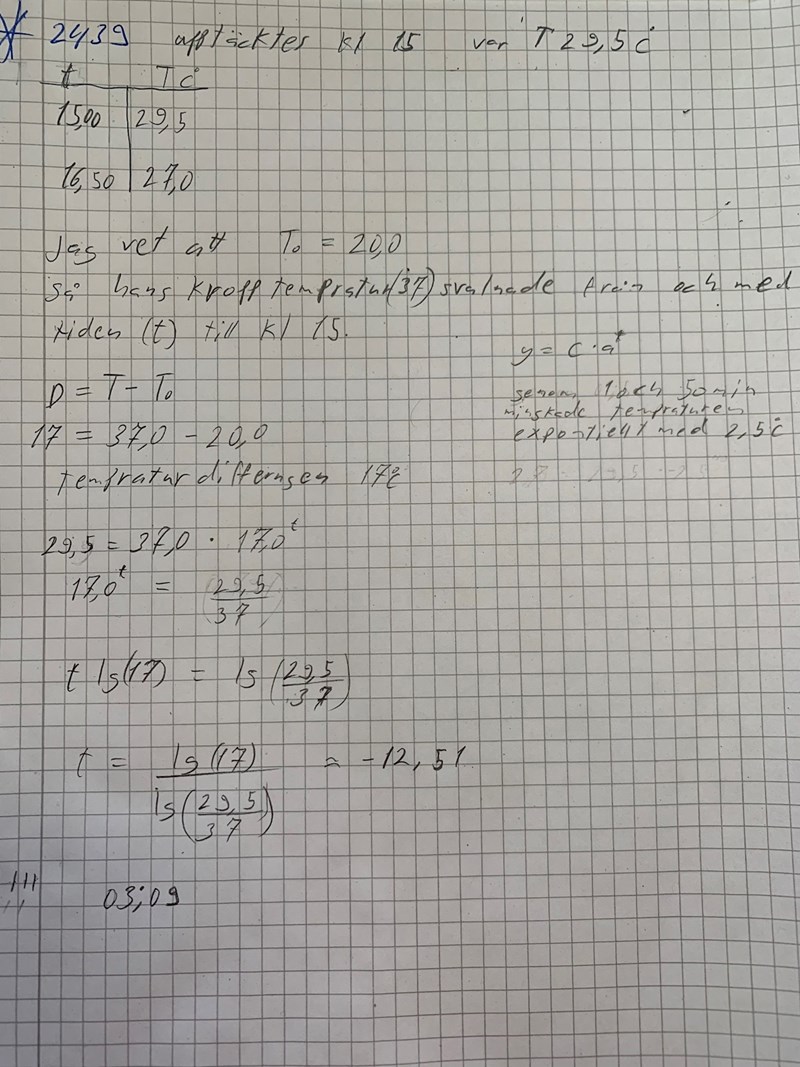 2439 upptäcktes kl 15 var T 29,5 c°
t T c°
15,00 29,5
16,50 27,0
Jag vet att T₀ = 20,0
så hans kropp tempratur(37) svalnade från och med
tiden (t) till kl 15.
y = C · aᵗ
genom 1 och 50 min
minskade tempraturen
exponentiellt med 2,5 c°
D = T - T₀
17 = 37,0 - 20,0
tempratur differnsen 17c°
29,5 = 37,0 · 17,0ᵗ
17,0ᵗ = (29,5/37)
t lg(17) = lg(29,5/37)
t = lg(17)/lg(29,5/37) ≈ -12,51
03;09